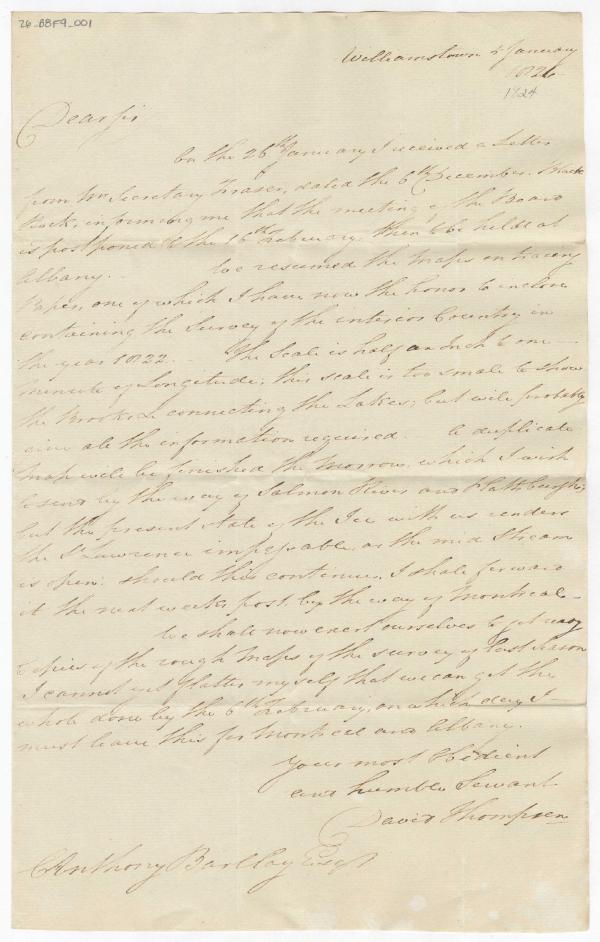 26_BBF9_001
Williamstown
January
1824
Dear Sir
On the 26th January I received a Letter
from Mr Secretary Fraser, dated the 6th December, Black
Rock, informing me that the meeting of the Board
is postponed to the 16th February, then to be held at
Albany. We resumed the Maps on tracing
Paper, one of which I have now the honor to inclose
containing the Survey of the interior Country in
the year 1822. The Scale is half an Inch to one
minute of Longitude; this scale is too small to show
the Brooks &c connecting the Lakes; but will probably
give all the information required. A duplicate
Map will be finished the morrow, which I wish
to send by the way of Salmon River and Plattsburgh;
but the present state of the Ice with us renders
the St Lawrence impassable, as the mid Stream
is open: should this continue, I shall forward
it the next weeks post, by the way of Montreal-
We shall now exert ourselves to get ready
Copies of the rough Maps of the survey of last season
I cannot yet flatter myself that we can get the
whole done by the 6th February, on which day I
must leave this for Montreal and Albany.
Your most Obedient
and humble Servant
David Thompson
Anthony Barclay Esqr